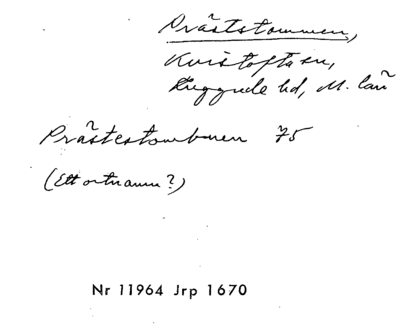 Präststommen,
Kvistofta sn,
Luggude hd, M. län
Prästestombnen 75
(Ett ortnamn?)
Nr 11964 Jrp 1670